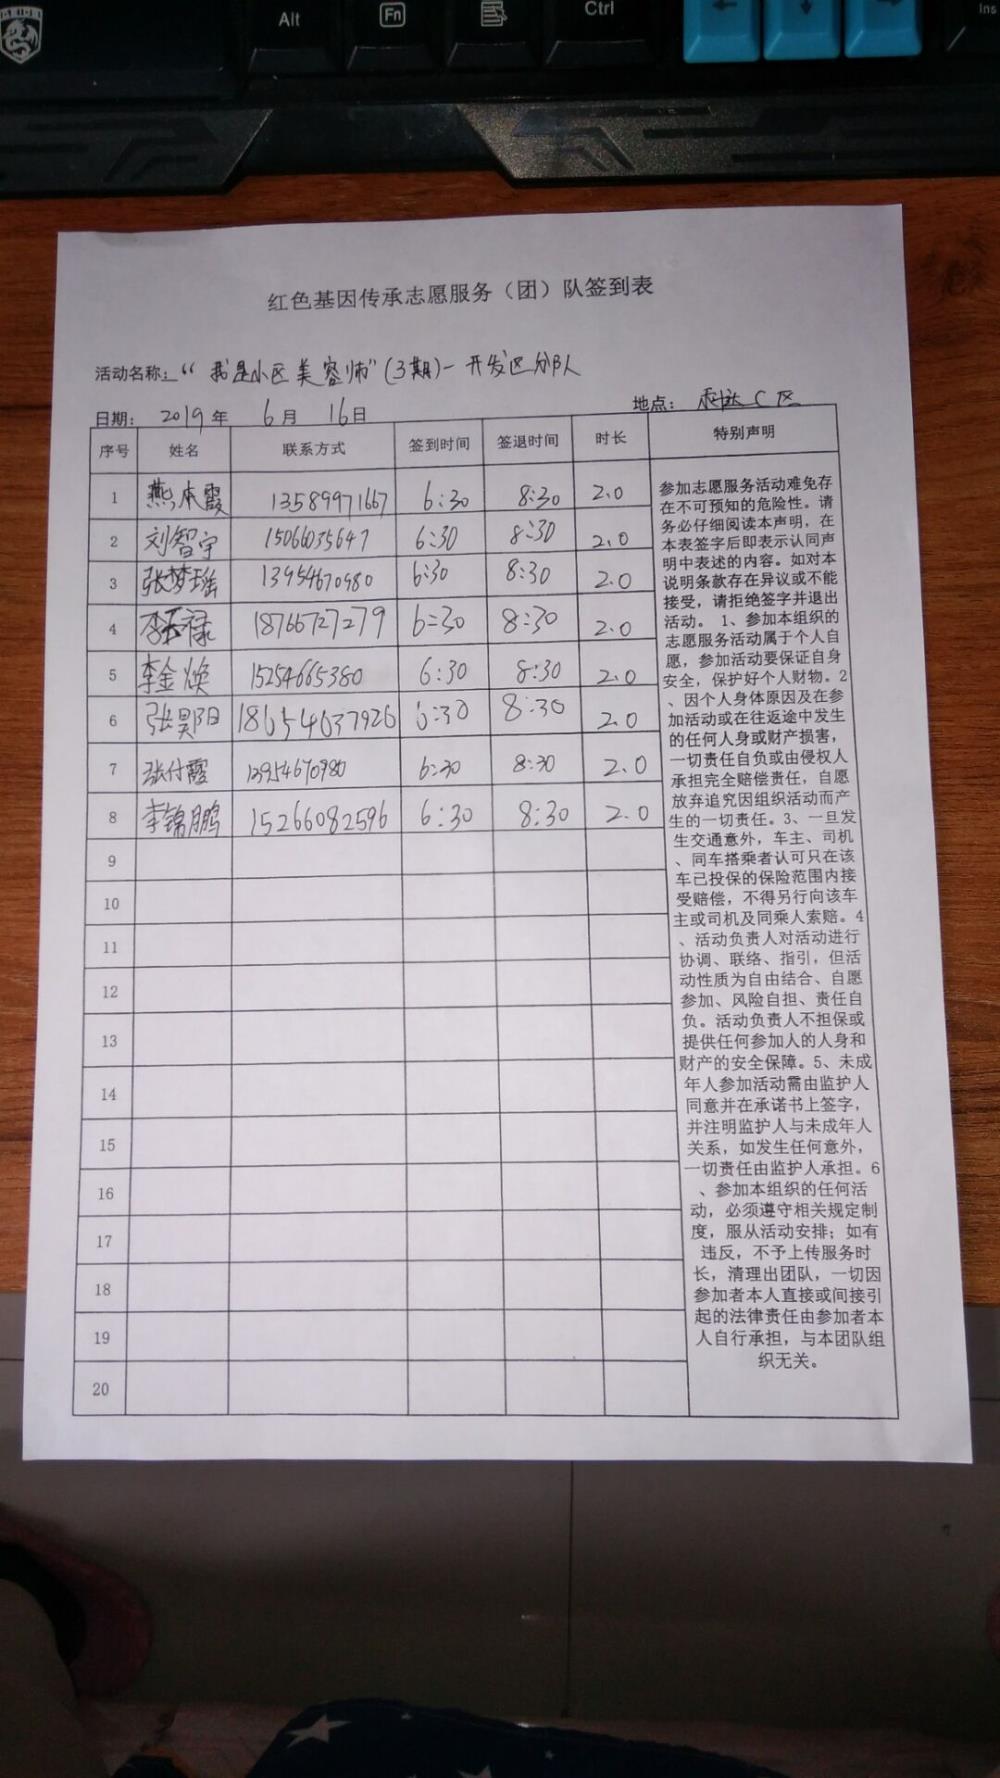 Alt
Fn
Ctrl
Ins
红色基因传承志愿服务（团）队签到表
活动名称：“我是小区美容师”（3期）一开发区分队
日期： 2019 年 6 月 16日
地点： C区
序号 姓名 联系方式 签到时间 签退时间 时长 特别声明
1 燕本霞 13589971667 6:30 8:30 2.0
2 刘智宇 15066035647 6:30 8:30 2.0
3 张梦瑶 13954670980 6:30 8:30 2.0
4 李 禄 18766727279 6:30 8:30 2.0
5 李金焕 15254665380 6:30 8:30 2.0
6 张昊阳 18654637926 6:30 8:30 2.0
7 张付霞 13954670980 6:30 8:30 2.0
8 李锦鹏 15266082596 6:30 8:30 2.0
9
10
11
12
13
14
15
16
17
18
19
20
参加志愿服务活动难免存
在不可预知的危险性。请
务必仔细阅读本声明，在
本表签字后即表示认同声
明中表述的内容。如对本
说明条款存在异议或不能
接受，请拒绝签字并退出
活动。 1、参加本组织的
志愿服务活动属于个人自
愿，参加活动要保证自身
安全，保护好个人财物。2
、因个人身体原因及在参
加活动或在往返途中发生
的任何人身或财产损害，
一切责任自负或由侵权人
承担完全赔偿责任，自愿
放弃追究因组织活动而产
生的一切责任。3、一旦发
生交通意外，车主、司机
、同车搭乘者认可只在该
车已投保的保险范围内接
受赔偿，不得另行向该车
主或司机及同乘人索赔。4
、活动负责人对活动进行
协调、联络、指引，但活
动性质为自由结合、自愿
参加、风险自担、责任自
负。活动负责人不担保或
提供任何参加人的人身和
财产的安全保障。5、未成
年人参加活动需由监护人
同意并在承诺书上签字，
并注明监护人与未成年人
关系，如发生任何意外，
一切责任由监护人承担。6
、参加本组织的任何活
动，必须遵守相关规定制
度，服从活动安排；如有
违反，不予上传服务时
长，清理出团队，一切因
参加者本人直接或间接引
起的法律责任由参加者本
人自行承担，与本团队组
织无关。